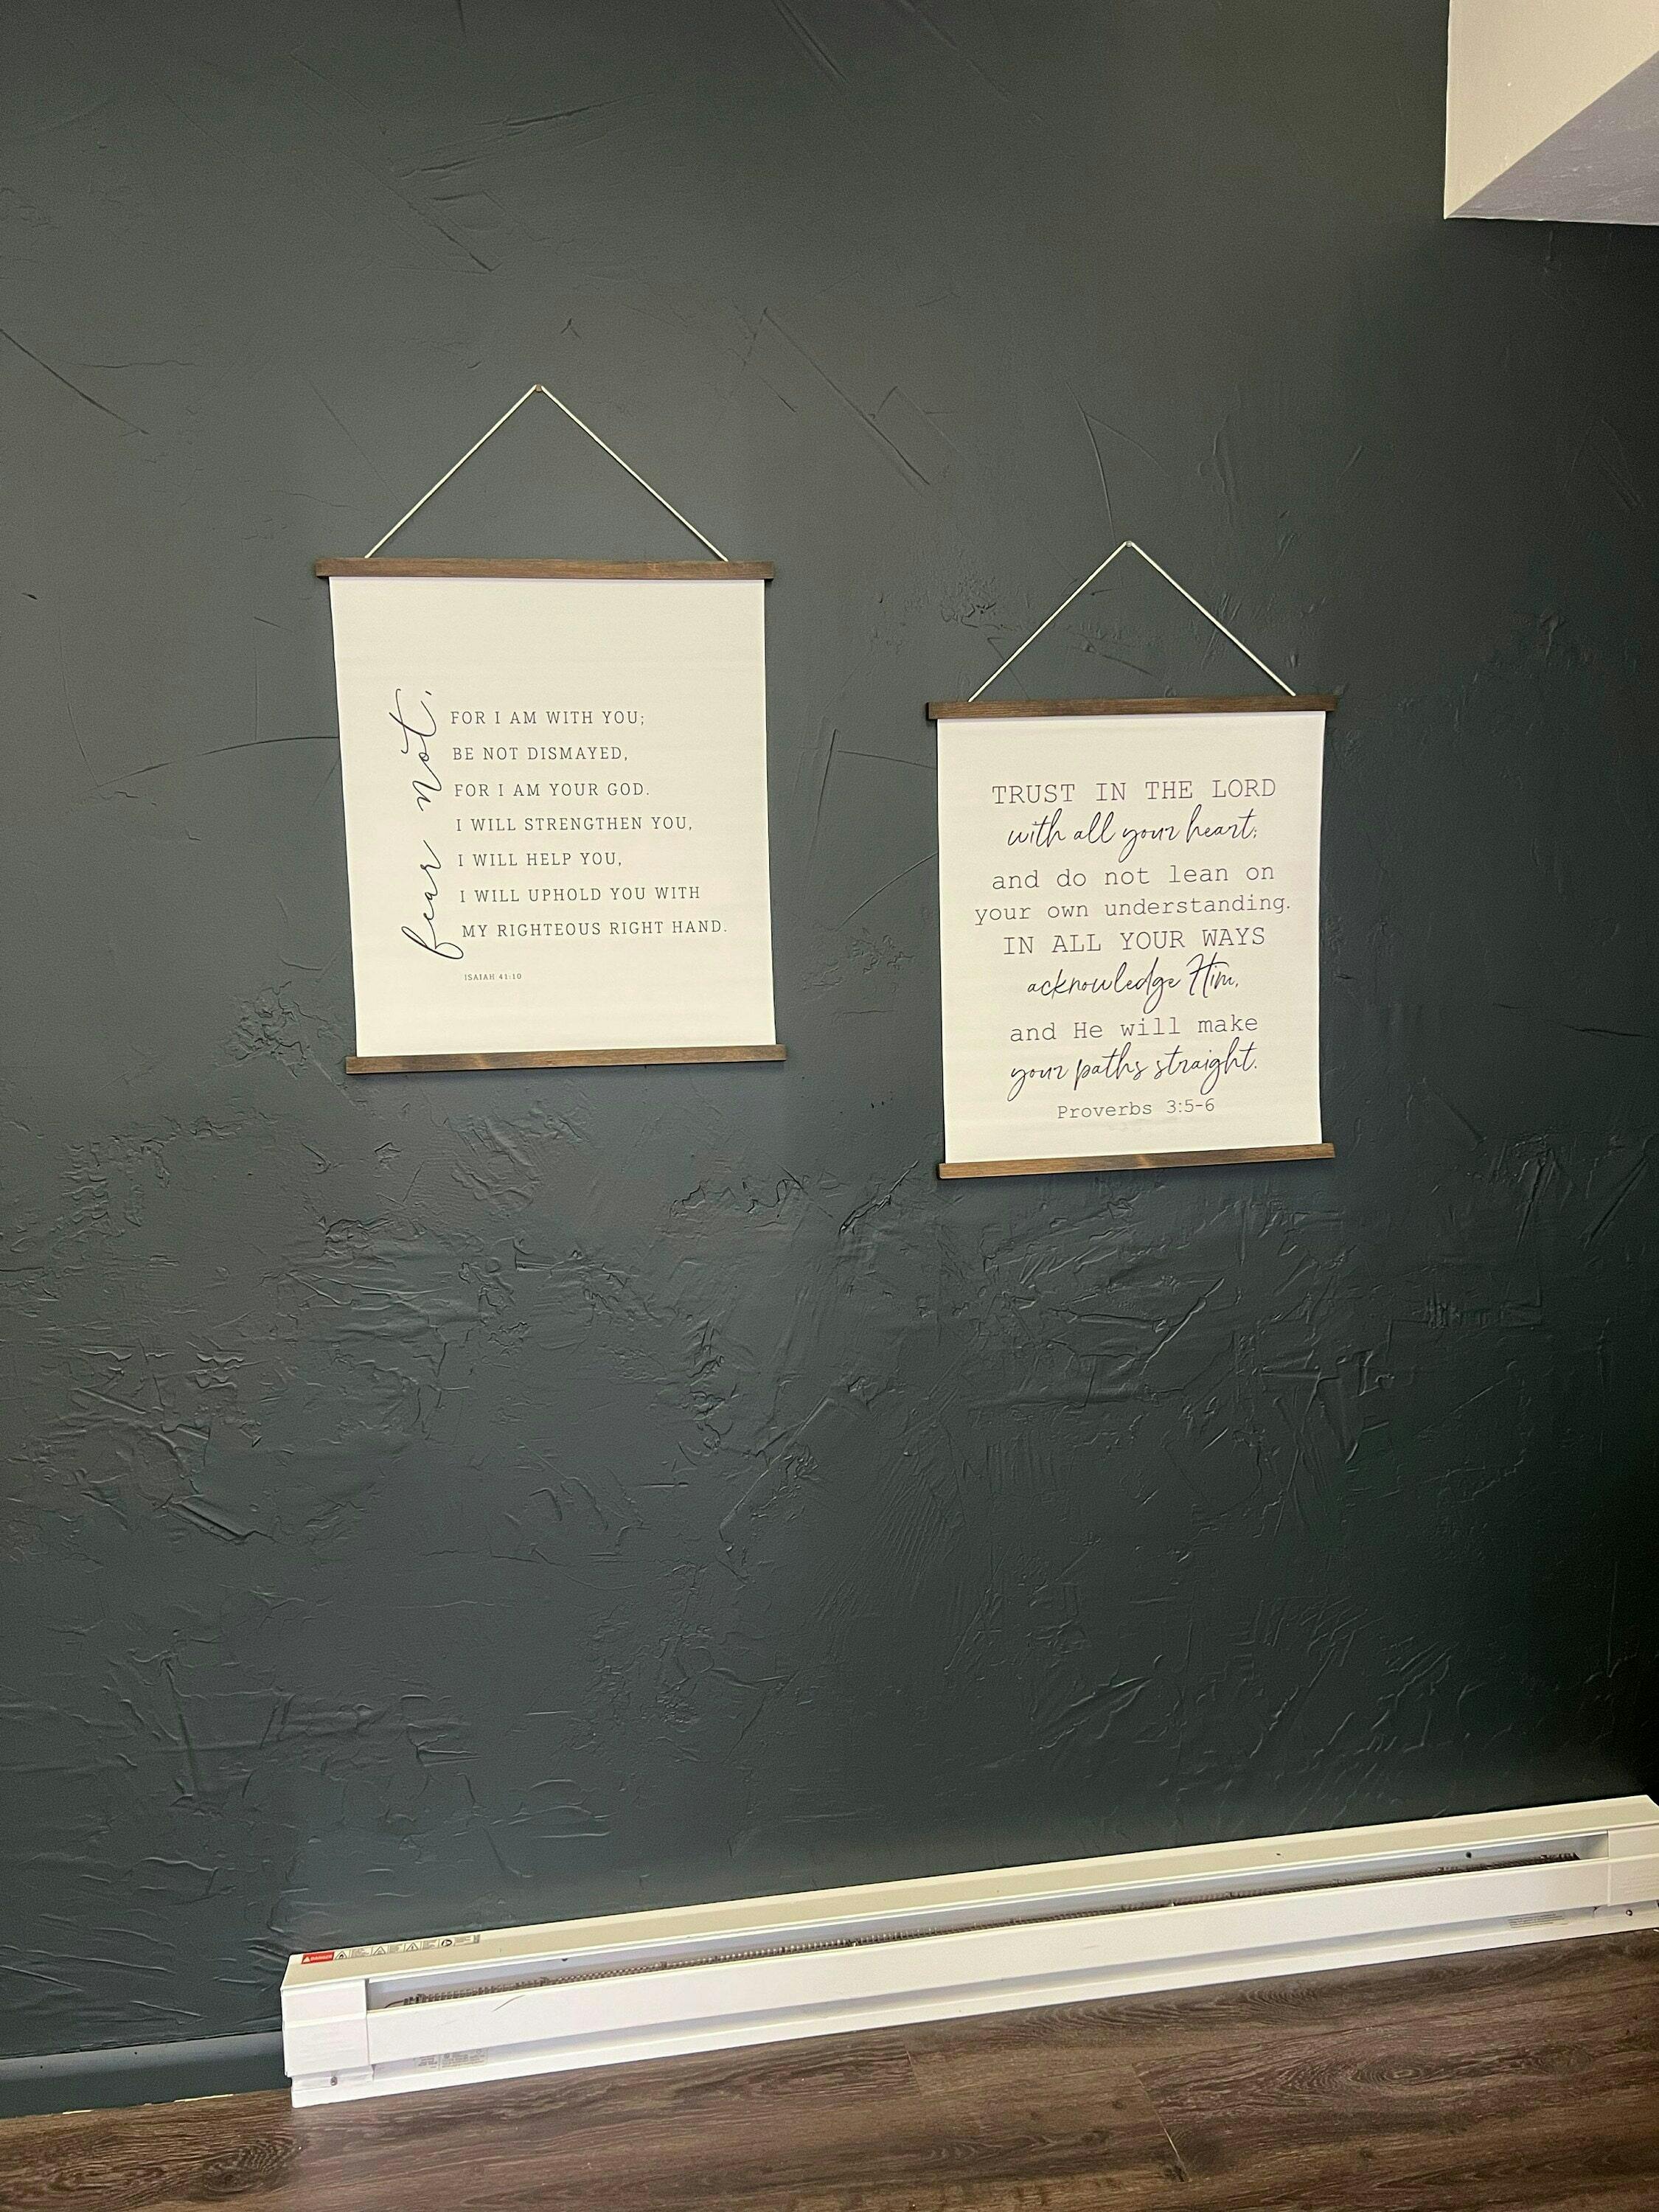 fear not,
FOR I AM WITH YOU;
BE NOT DISMAYED,
FOR I AM YOUR GOD.
I WILL STRENGTHEN YOU,
I WILL HELP YOU,
I WILL UPHOLD YOU WITH
MY RIGHTEOUS RIGHT HAND.
ISAIAH 41:10
TRUST IN THE LORD
with all your heart;
and do not lean on
your own understanding.
IN ALL YOUR WAYS
acknowledge Him,
and He will make
your paths straight.
Proverbs 3:5-6